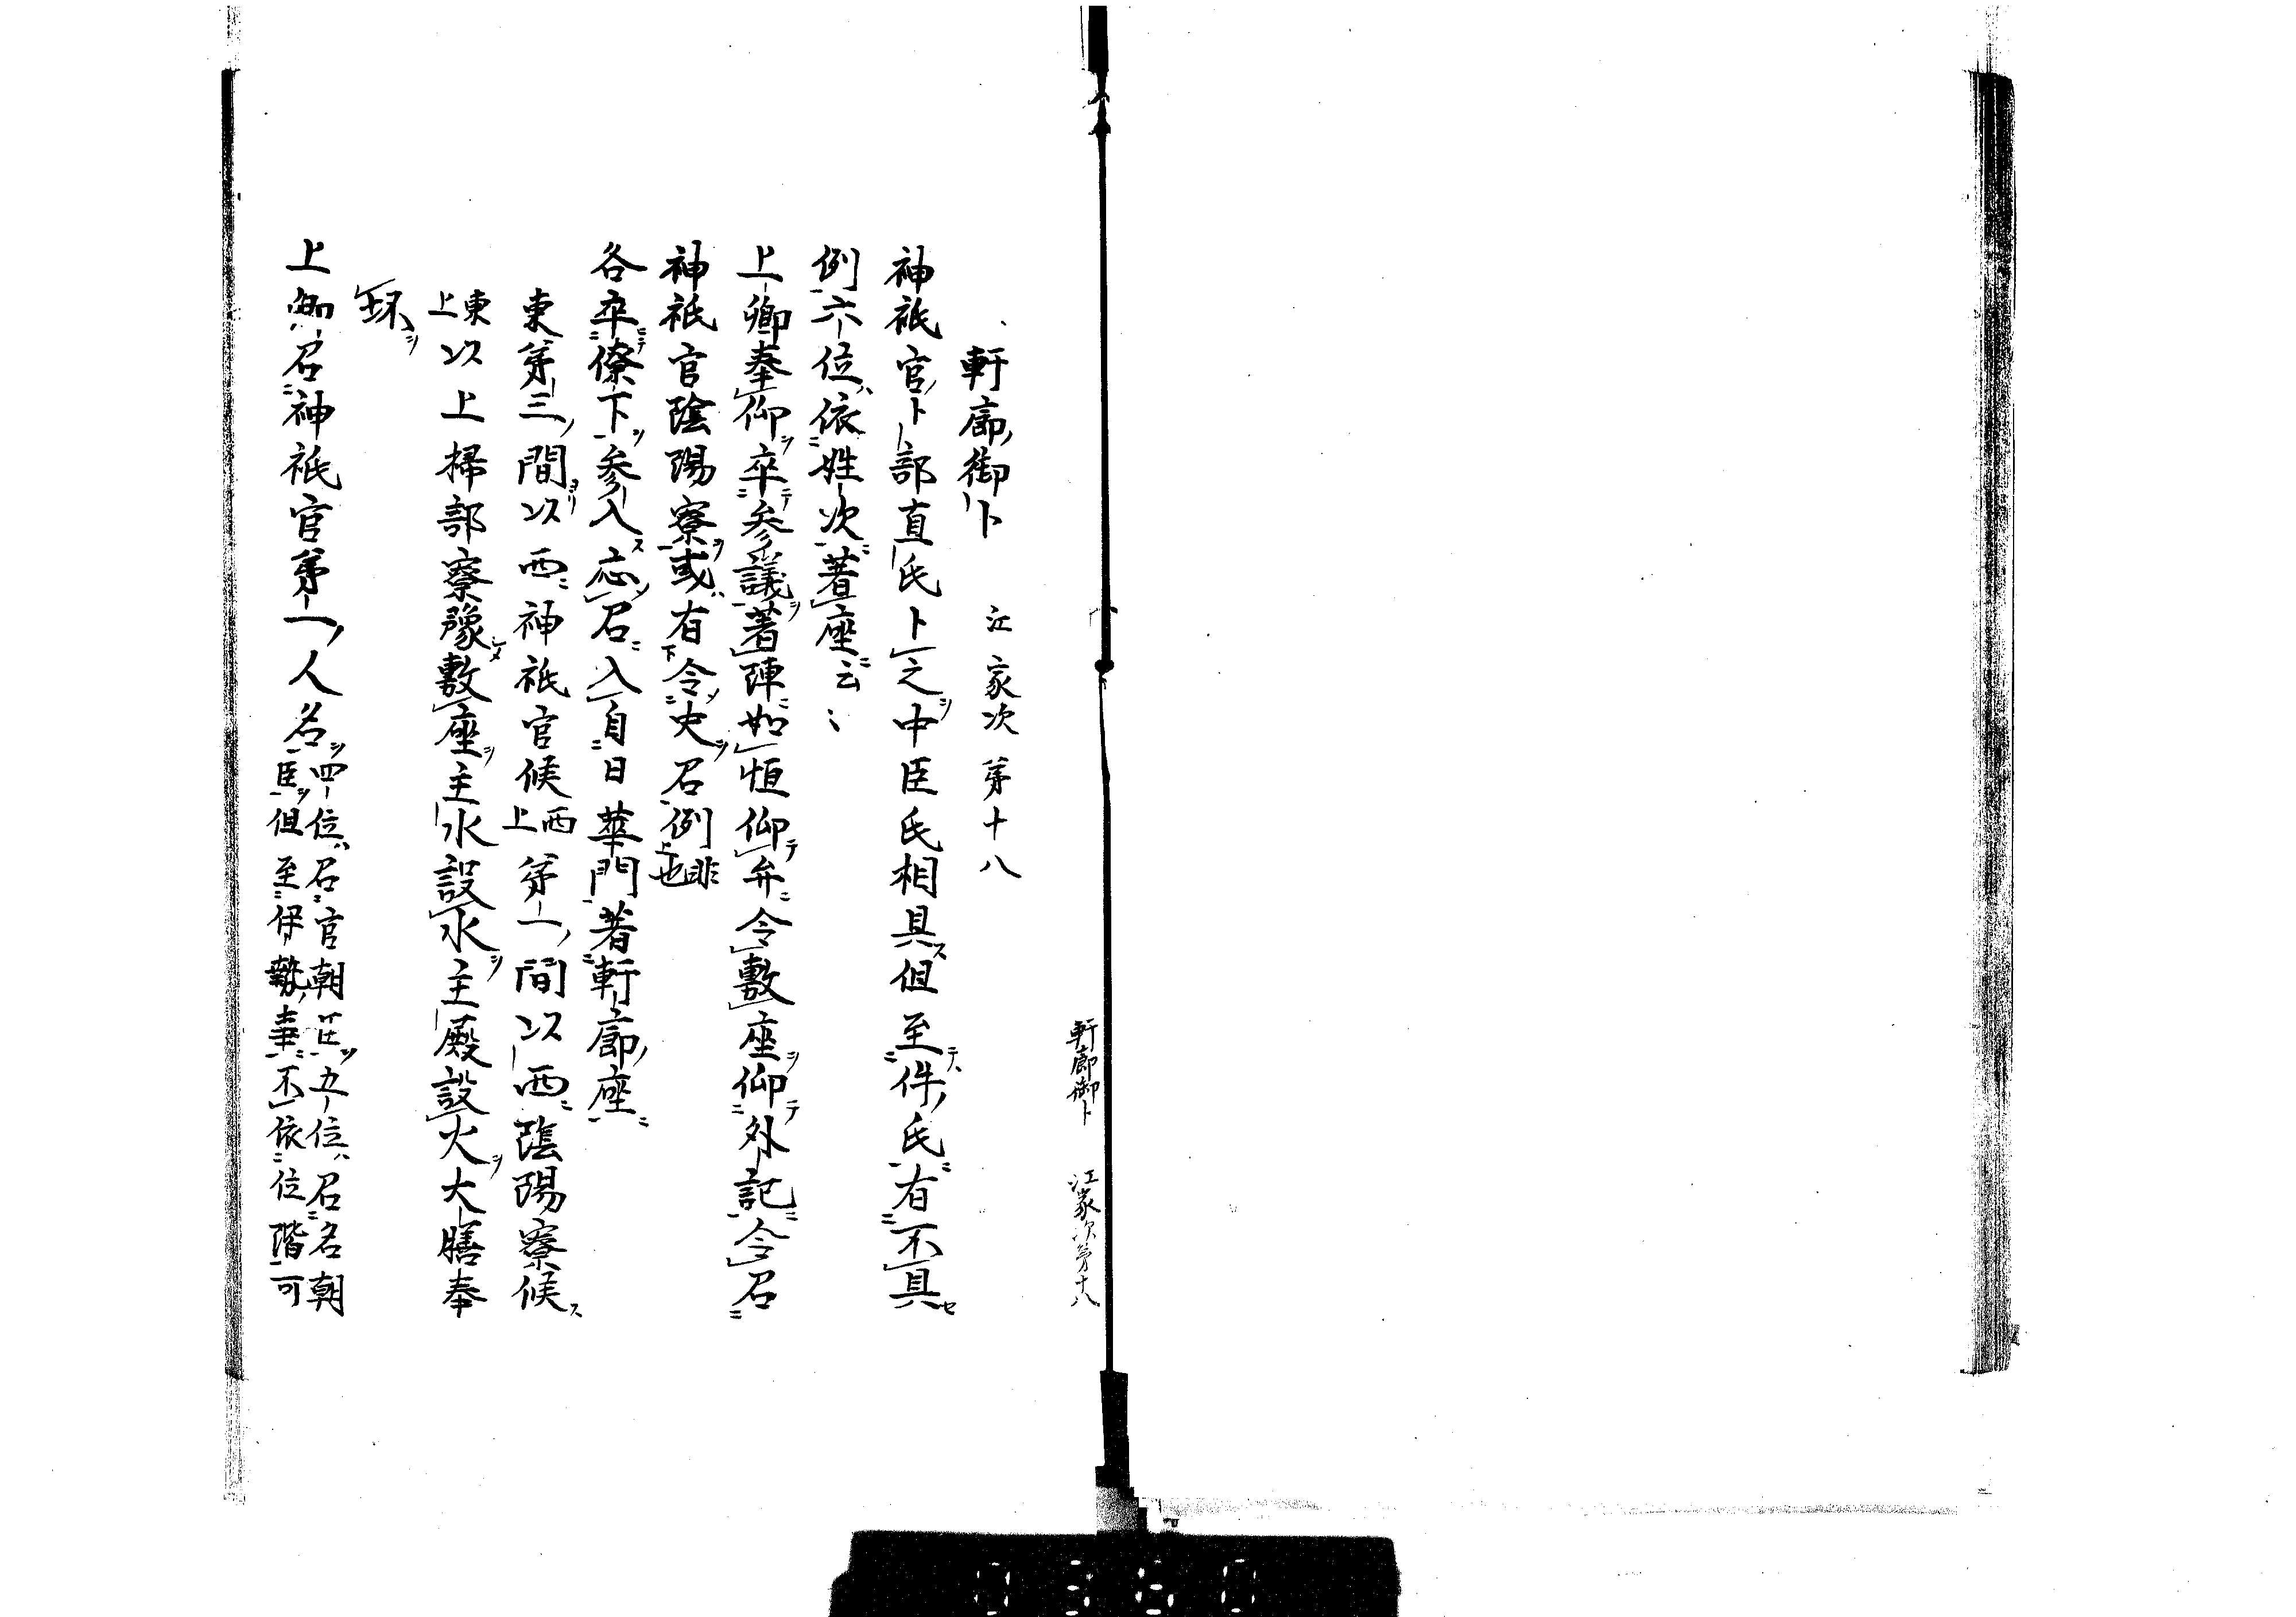 軒廊御卜　江家次第十八
軒廊御卜　江家次第十八
神祇官卜部直氏卜之中臣氏相具但至件氏有不具
例六位依姓次著座云〻
上卿奉仰卒参議著陣如恒仰弁令敷座仰外記令召
神祇官陰陽寮或有令史召例非上也
各卒僚下参入応召入自日華門著軒廊座
東第三間以西神祇官候西上第一間以西陰陽寮候
東上以上掃部寮豫敷座主水設水主殿設火大膳奉
上卿召神祇官第一人名四位召官朝臣五位召名朝
臣但至伊勢事不依位階可